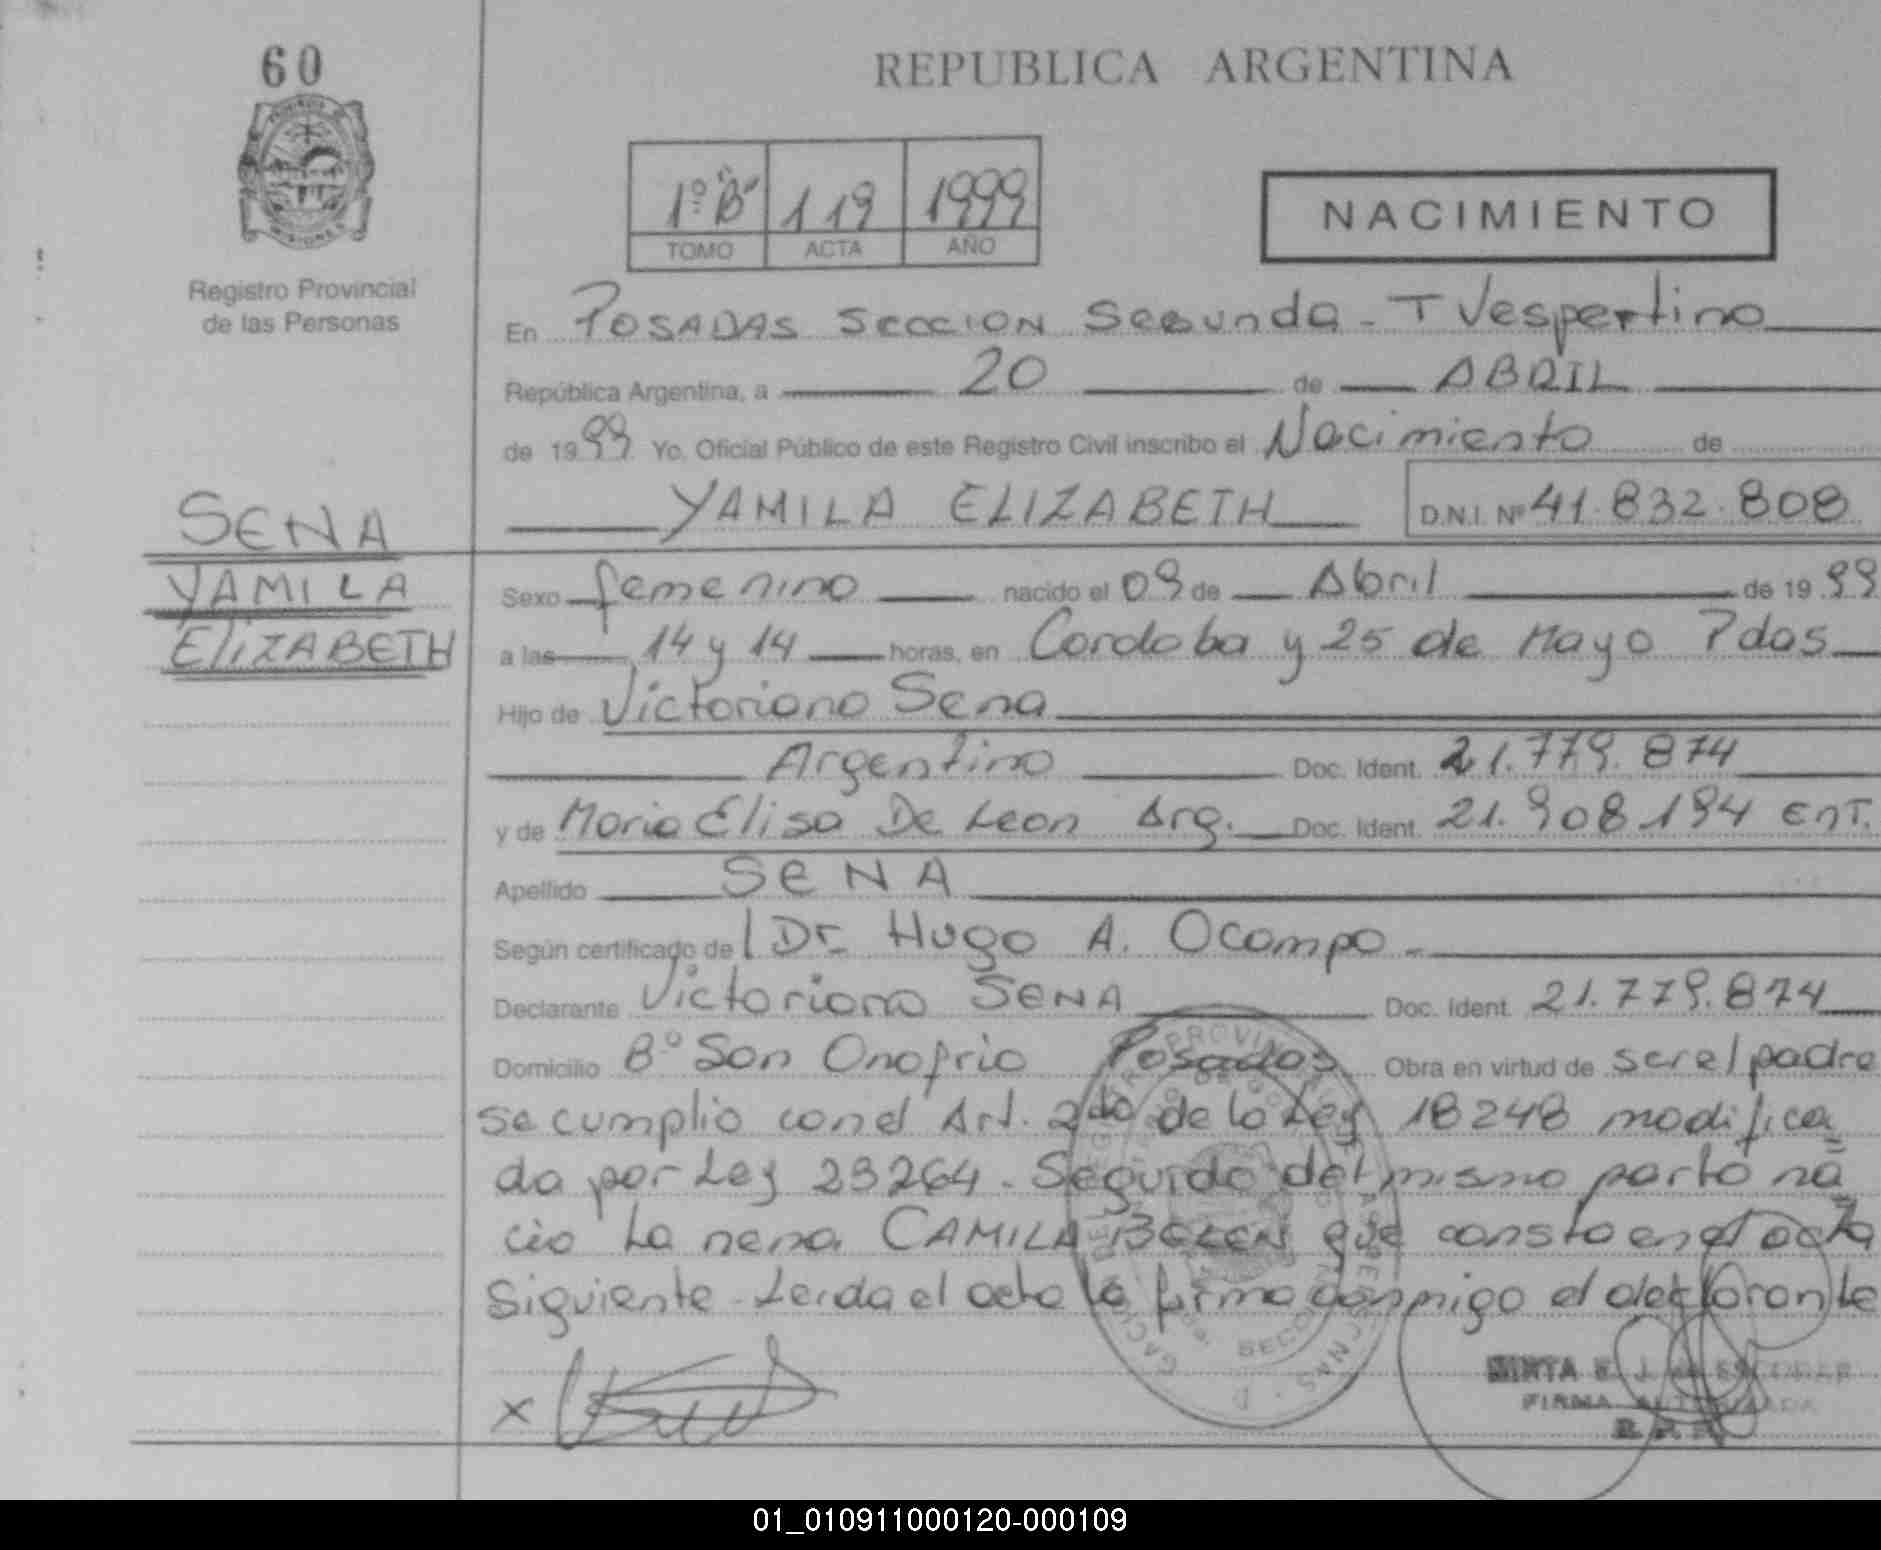 60
REPUBLICA ARGENTINA
MISIONES
Registro Provincial
de las Personas
1º "B" 119 1999
TOMO ACTA AÑO
NACIMIENTO
En POSADAS SECCION Segunda - T Vespertino
República Argentina, a 20 de ABRIL
de 1999 Yo, Oficial Público de este Registro Civil inscribo el Nacimiento de
YAMILA ELIZABETH D.N.I. Nº 41.832.808
SENA
YAMILA
ELIZABETH
Sexo femenino nacido el 09 de Abril de 1999
a las 14 y 14 horas, en Cordoba y 25 de Mayo Pdas
Hijo de Victoriano Sena
Argentino Doc. Ident. 21.779.874
y de Maria Elisa De Leon Arg. Doc. Ident. 21.908.194 ENT.
Apellido SENA
Según certificado de Dr. Hugo A. Ocampo -
Declarante Victoriano SENA Doc. Ident. 21.779.874
Domicilio Bº San Onofrio Posadas Obra en virtud de ser el padre
se cumplio con el Art. 2do de la Ley 18248 modifica
da por Ley 23264 - Seguido del mismo parto na
cio La nena CAMILA BELEN que consta en el acta
siguiente - Leida el acta la firma conmigo el declarante
X
MIRTA E. J. de ESCOBAR
FIRMA AUTORIZADA
01_010911000120-000109